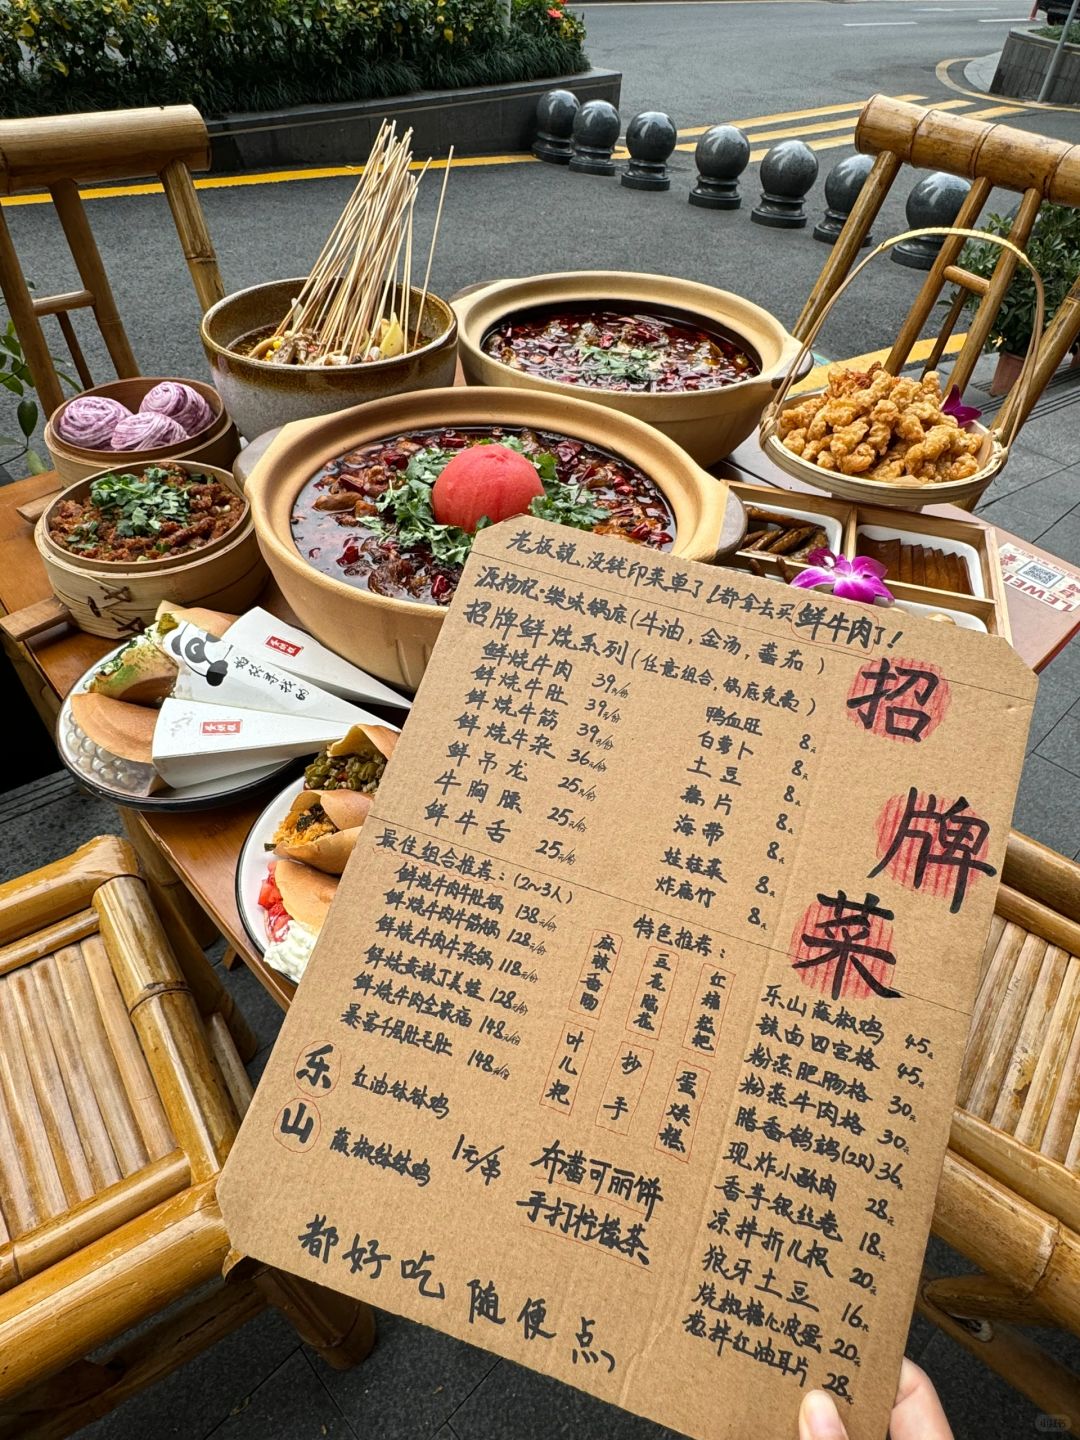 老板說,没钱印菜单了!都拿去买鲜牛肉了!
源杨记·樂味锅底(牛油,金汤,蕃茄)
招牌鲜烧系列(任意组合,锅底免费)
鲜烧牛肉 39元/份
鲜烧牛肚 39元/份
鲜烧牛筋 39元/份
鲜烧牛杂 36元/份
鲜吊龙 25元/份
牛胸腺 25元/份
鲜牛舌 25元/份
鸭血旺 8元
白萝卜 8元
土豆 8元
藕片 8元
海带 8元
娃娃菜 8元
炸腐竹 8元
最佳组合推荐:(2~3人)
鲜烧牛肉牛肚锅 138元/份
鲜烧牛肉牛筋锅 128元/份
鲜烧牛肉牛杂锅 118元/份
鲜烧黄辣丁美蛙 128元/份
鲜烧牛肉全家福 148元/份
暴富千层肚毛肚 148元/份
特色推荐:
麻辣香肠
豆花脑花
红糖糍粑
叶儿粑
抄手
蛋烘糕
乐山
红油钵钵鸡
藤椒钵钵鸡
1元/串
布蕾可丽饼
手打柠檬茶
都好吃 随便点
招牌菜
乐山藤椒鸡 45元
辣卤四宫格 45元
粉蒸肥肠格 30元
粉蒸牛肉格 30元
腊香鹌鹑(2只) 36元
现炸小酥肉 28元
香芋银丝卷 18元
凉拌折儿根 20元
狼牙土豆 16元
烧椒糖心皮蛋 20元
葱拌红油耳片 28元
LEWEI
小红书